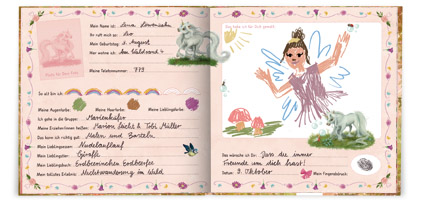 Mein Name ist: Lena Löwenzahn
Ihr ruft mich so: Leo
Mein Geburtstag: 3. August
Hier wohne ich: Am Waldrand 4
Meine Telefonnummer: 779
So alt bin ich:
Meine Augenfarbe: Meine Haarfarbe: Meine Lieblingsfarbe:
Ich gehe in die Gruppe: Marienkäfer
Meine Erzieher/innen heißen: Marion Specht & Tobi Müller
Das kann ich richtig gut: Malen und Basteln
Mein Lieblingsessen: Nudelauflauf
Mein Lieblingstier: Giraffe
Mein Lieblingsbuch: Erdbeerinchen Erdbeerfee
Mein tollstes Erlebnis: Nachtwanderung im Wald
Das habe ich für dich gemalt:
Das wünsche ich dir: Dass du immer
Freunde um dich hast!
Datum: 9. Oktober
Mein Fingerabdruck: